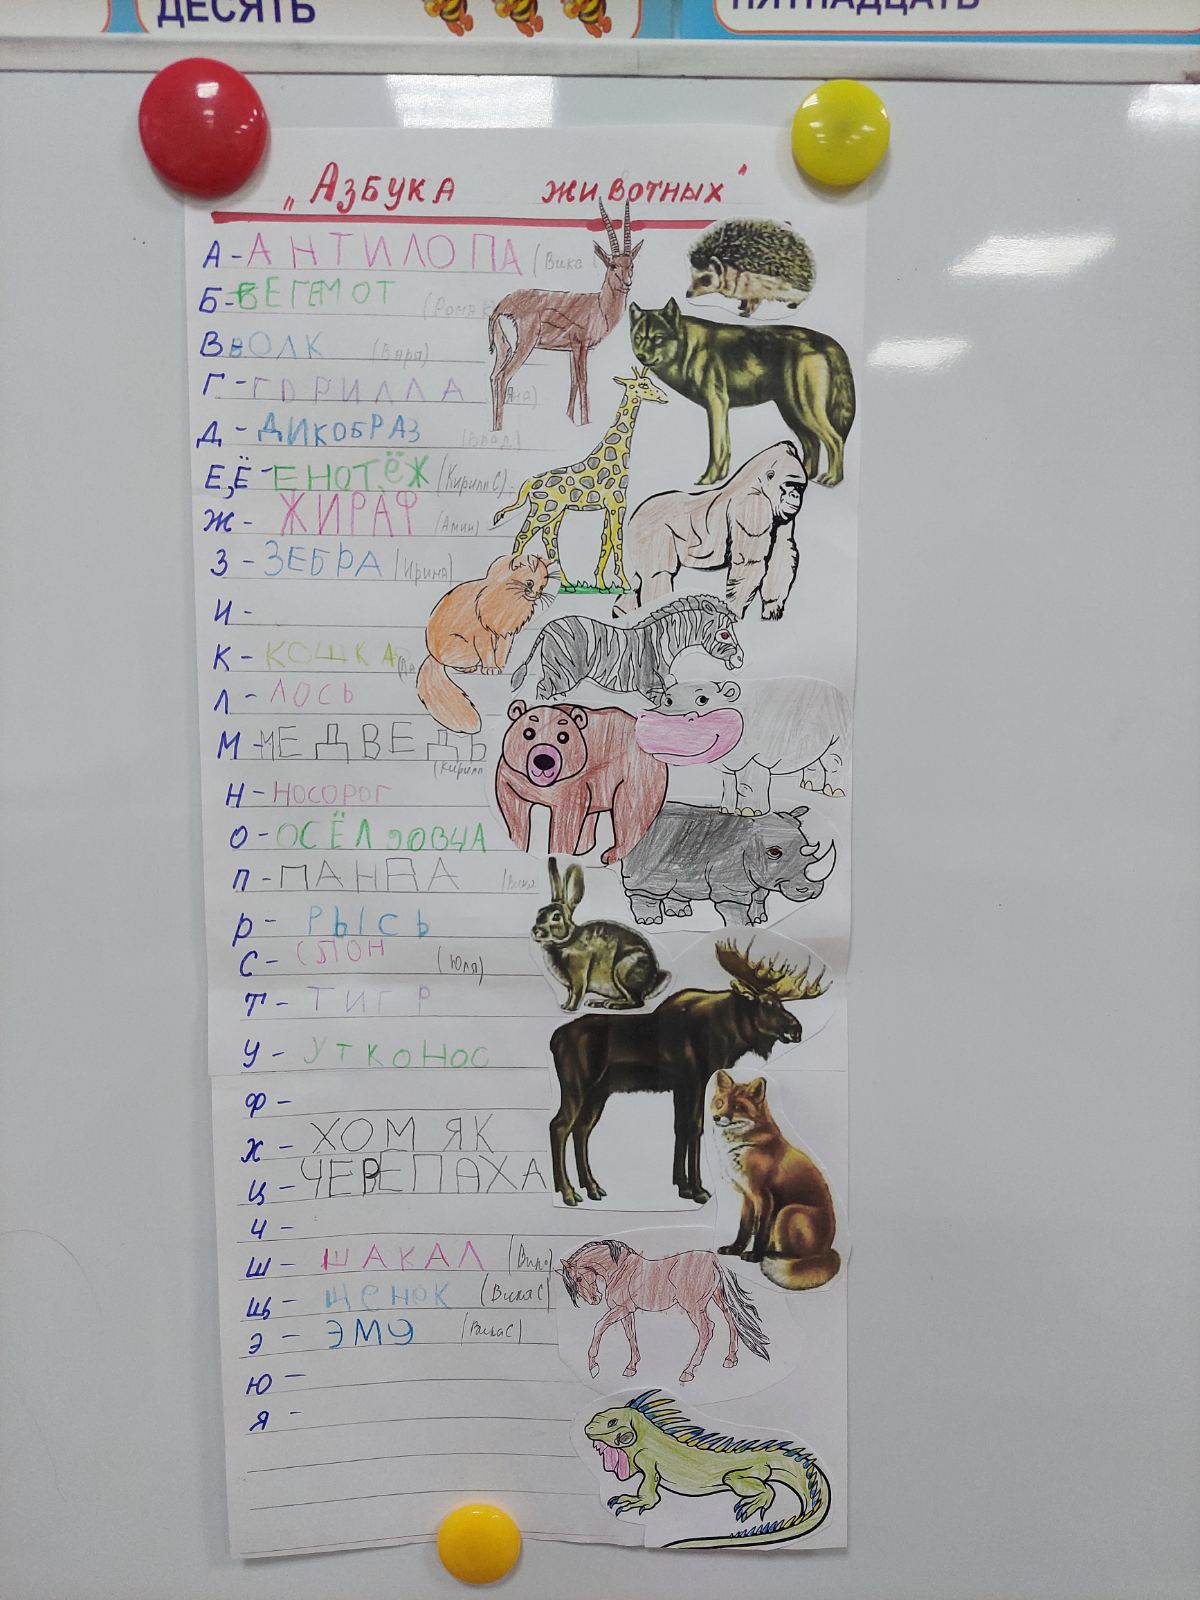 ДЕСЯТЬ
ПЯТНАДЦАТЬ
„Азбука животных"
А - АНТИЛОПА (Вика
Б - БЕГЕМОТ (Рома К
В - ВОЛК (Варя)
Г - ГОРИЛЛА
Д - ДИКОБРАЗ (Влад)
Е,Ё - ЕНОТ, ЁЖ (Кирилл С).
Ж - ЖИРАФ
З - ЗЕБРА (Ирина)
И -
К - КОШКА
Л - ЛОСЬ
М - МЕДВЕДЬ
(Кирилл
Н - НОСОРОГ
О - ОСЁЛ, ОВЦА
П - ПАНДА
Р - РЫСЬ
С - СЛОН (Юля)
Т - ТИГР
У - УТКОНОС
Ф -
Х - ХОМЯК
Ц - ЧЕРЕПАХА
Ч -
Ш - ШАКАЛ
Щ - ЩЕНОК (Вика С)
Э - ЭМУ (Вика С)
Ю -
Я -